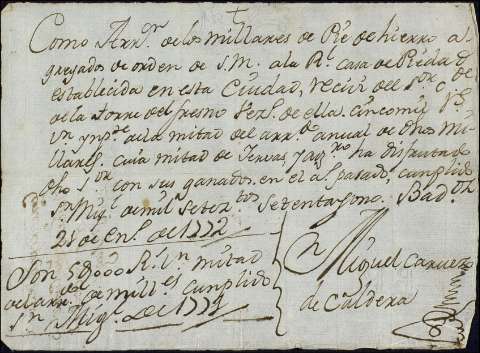 Como Arr.or de los millares de Pie de hierro a
gregados de orden de S.M. a la R.l casa de Piedad
establecida en esta Ciudad, recivi del S.or C. de
de la Torre del fresno Vez.o de ella cincomil R.s
V.n ymp.te de la mitad del arr.do anual de dhos Mi
llares, cuia mitad de Yervas, ha disfrutado
dho S.or con sus ganados en el a.o pasado, cumplido
S.n Mig.l de mil setez.tos setenta y uno. Bad.oz
21 de En.o de 1772
Miguel
de Caldera
Son 5000 R.s V.n mitad
del arr.do de mill.es cumplido
S.n Mig.l de 1771